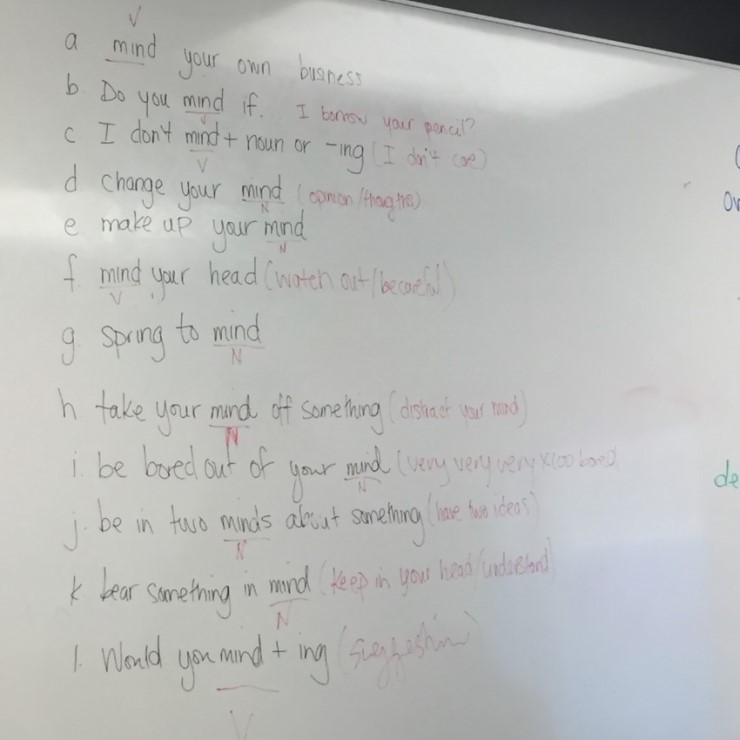 V
a mind your own business
b. Do you mind if. I borrow your pencil?
V
c I don't mind + noun or -ing (I don't care)
V
d change your mind (opinion/thougths)
N
e make up your mind
N
f. mind your head (watch out/becareful)
V
g. spring to mind
N
h take your mind off something (distract your mind)
N
i. be bored out of your mind (very very very x100 bored)
N
j. be in two minds about something (have two ideas)
N
k bear something in mind (keep in your head/understand)
N
l. Would you mind + ing (suggestion)
V
de